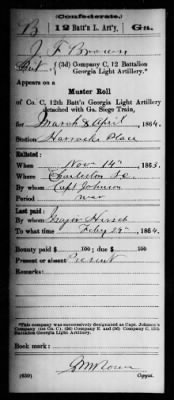 (Confederate.)
B 12 Batt'n L. Art'y, Ga.
J. F. Brown
Pvt., (3d) Company C, 12 Battalion
Georgia Light Artillery.*
Appears on a
Muster Roll
of Co. C, 12th Batt'n Georgia Light Artillery
detached with Ga. Siege Train,
for March & April, 1864.
Station Place
Enlisted:
When Nov 14, 1863.
Where Charleston S.C.
By whom Capt Johnson
Period war
Last paid:
By whom Major Hirsch
To what time Feby 29, 1864.
Bounty paid $ 100; due $ 100
Present or absent Present
Remarks:
*This company was successively designated as Capt. Johnson's
Company E and (3d) Company C, 12th
Battalion Georgia Light Artillery.
Book mark:
(639)
Copyist.